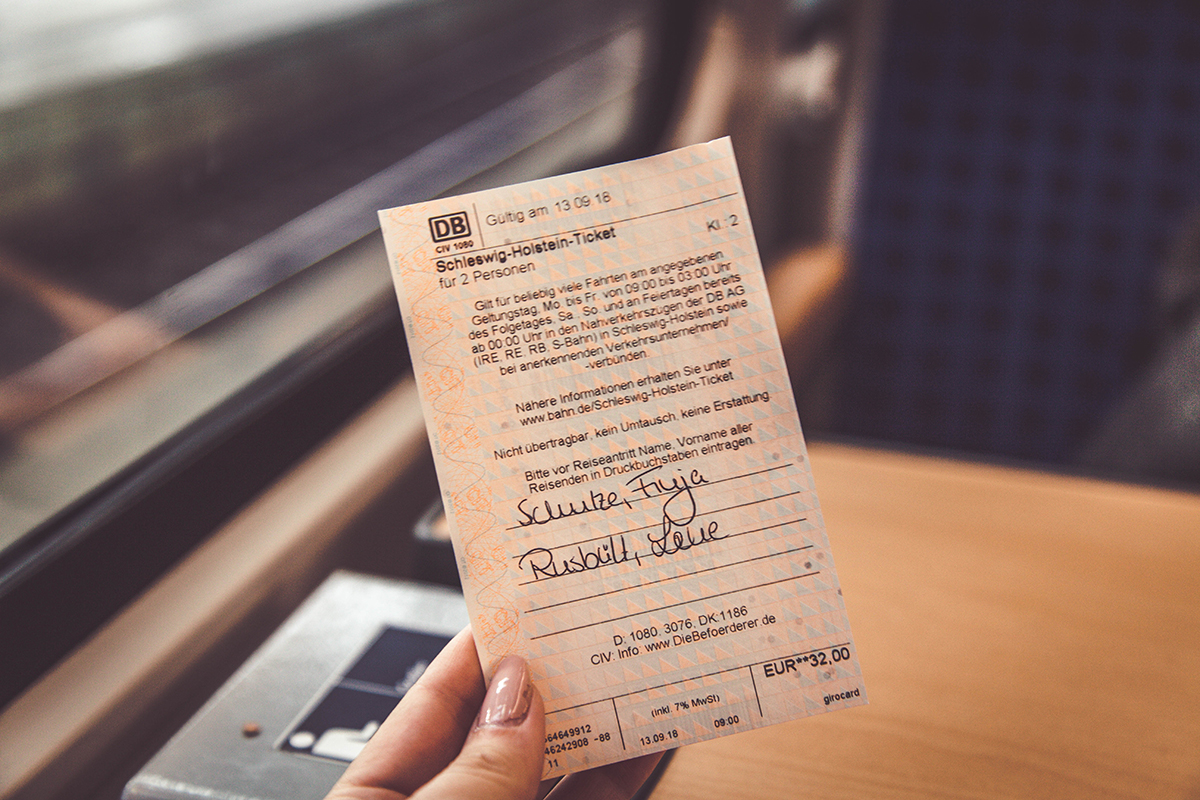 DB
CIV 1080
Gültig am 13 09 18
Schleswig-Holstein-Ticket
Kl.: 2
für 2 Personen
Gilt für beliebig viele Fahrten am angegebenen
Geltungstag, Mo. bis Fr. von 09:00 bis 03:00 Uhr
des Folgetages, Sa., So. und an Feiertagen bereits
ab 00:00 Uhr in den Nahverkehrszügen der DB AG
(IRE, RE, RB, S-Bahn) in Schleswig-Holstein sowie
bei anerkennenden Verkehrsunternehmen/
-verbünden.
Nähere Informationen erhalten Sie unter
www.bahn.de/Schleswig-Holstein-Ticket
Nicht übertragbar, kein Umtausch, keine Erstattung.
Bitte vor Reiseantritt Name, Vorname aller
Reisenden in Druckbuchstaben eintragen.
Schulze, Finja
Rusbült, Lene
D: 1080, 3076, DK:1186
CIV: Info: www.DieBefoerderer.de
EUR**32,00
(inkl. 7% MwSt)
girocard
64649912
46242908 -88
13.09.18
09:00
11